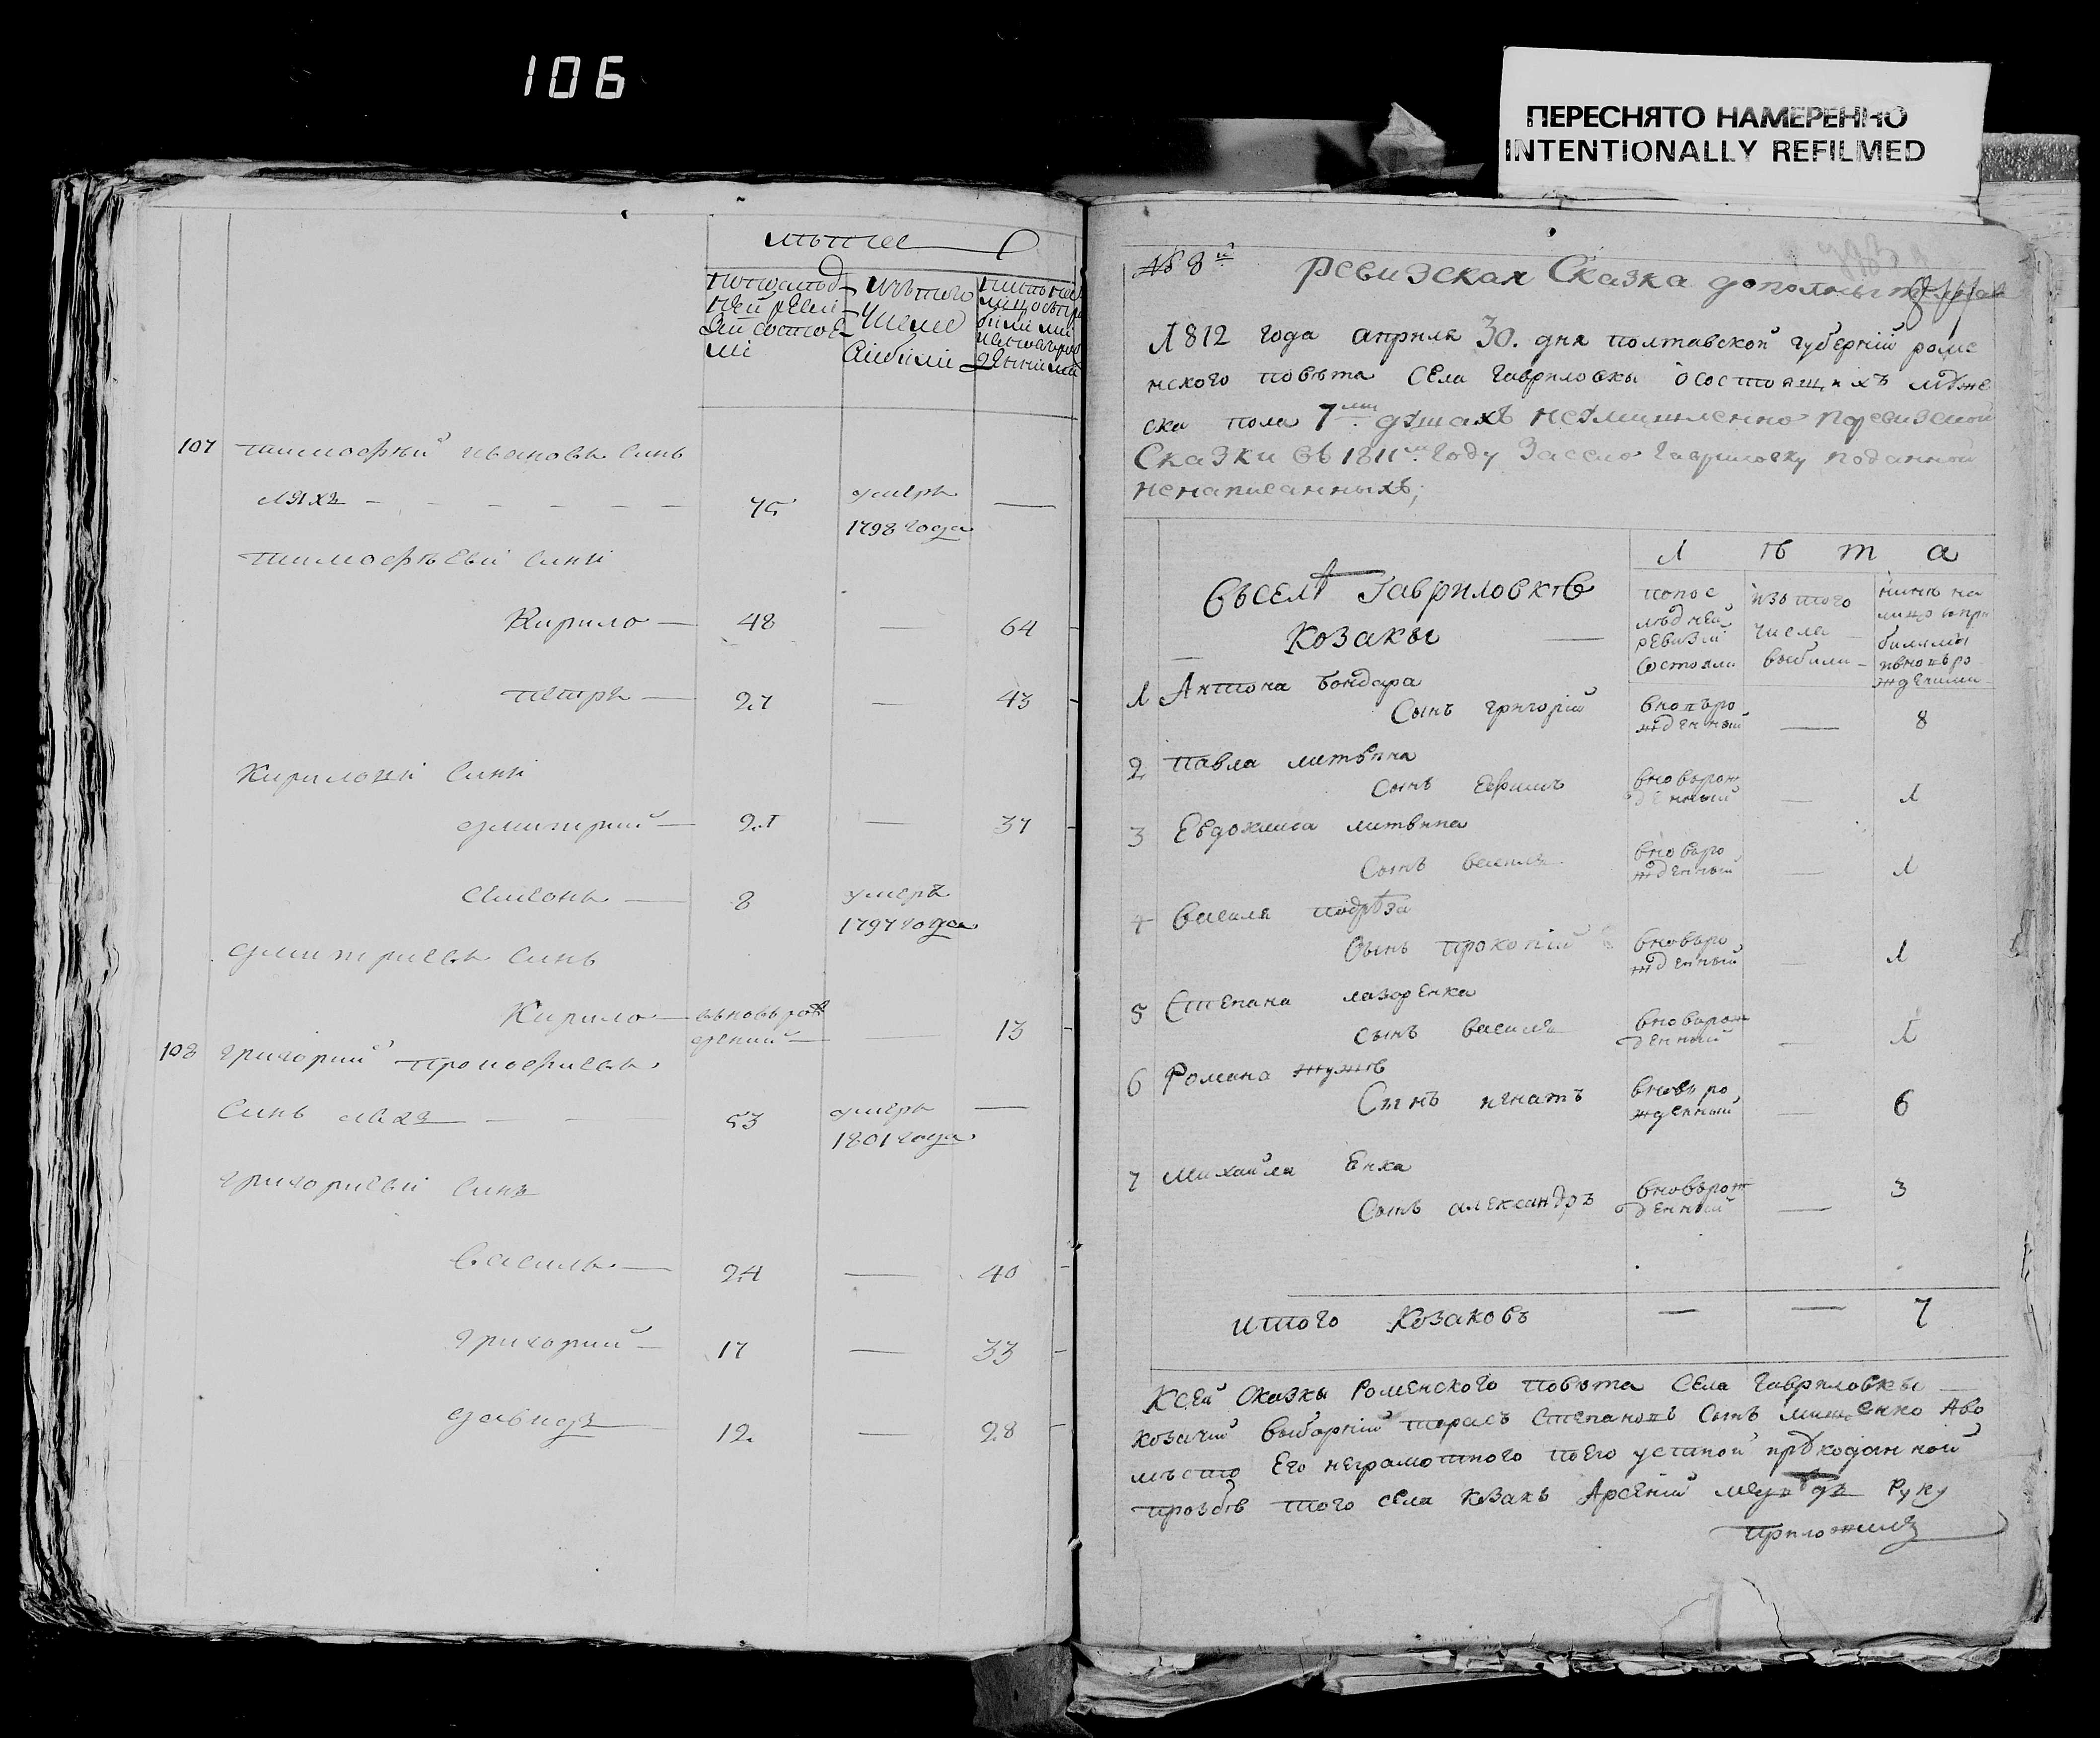 106
ПЕРЕСНЯТО НАМЕРЕННО
INTENTIONALLY REFILMED
лѣта
107 тимофѣй ивановъ синъ
ляхъ — 75 умеръ 1798 года —
тимофѣеви сини
Кирило — 48 — 64
петръ — 27 — 43
Кирилови сини
дмитрий — 21 — 37
Семенъ — 8 умеръ 1797 года
дмитриевъ синъ
Кирило — вновьрождений — 13
108 григорий прокофиевъ
синъ ляхъ — 53 умеръ 1801 года —
григориеви сини
Василь — 24 — 40
григорий — 17 — 33
давидъ 12 — 28
№ 8й
Ревизская Сказка
1812 года апреля 30. дня полтавской губерній роме
нского повѣта Села Гавриловки о состоящихъ мужес
ска пола 7ми душахъ неумишленно поревизской
Сказки въ 1811м Году За село Гавриловку поданной
ненаписанныхъ;
Л ѣ т а
Въселѣ Гавриловкѣ
Козаки —
попос
лѣдней
ревизіи
состояли
изъ того
числа
выбыли
нинѣ на
1 Антона бондара
Сынъ григорій вновьро
жденный — 8
2 Павла литвина
Сынъ Ефимъ вновьрож
денный — 1
3 Евдокима литвина
Сынъ василь вновьро
жденный — 1
4 Василя подрѣза
Сынъ прокопій вновьро
жденный — 1
5 Степана лазоренка
сынъ василь вновьрож
денный — 1
6 Романа
Сынъ игнатъ вновь ро
жденный — 6
7 Михайла Енка
Сынъ александръ вновьрож
денный — 3
итого Козаковъ — — 7
Ксей Сказки Роменского повѣта Села Гавриловки
козачій выборній тарасъ Степановъ Сынъ мищенко Аво
мѣсто Его неграмотного поего устной
прозбѣ того села козакъ Арсеній Руку
приложилъ